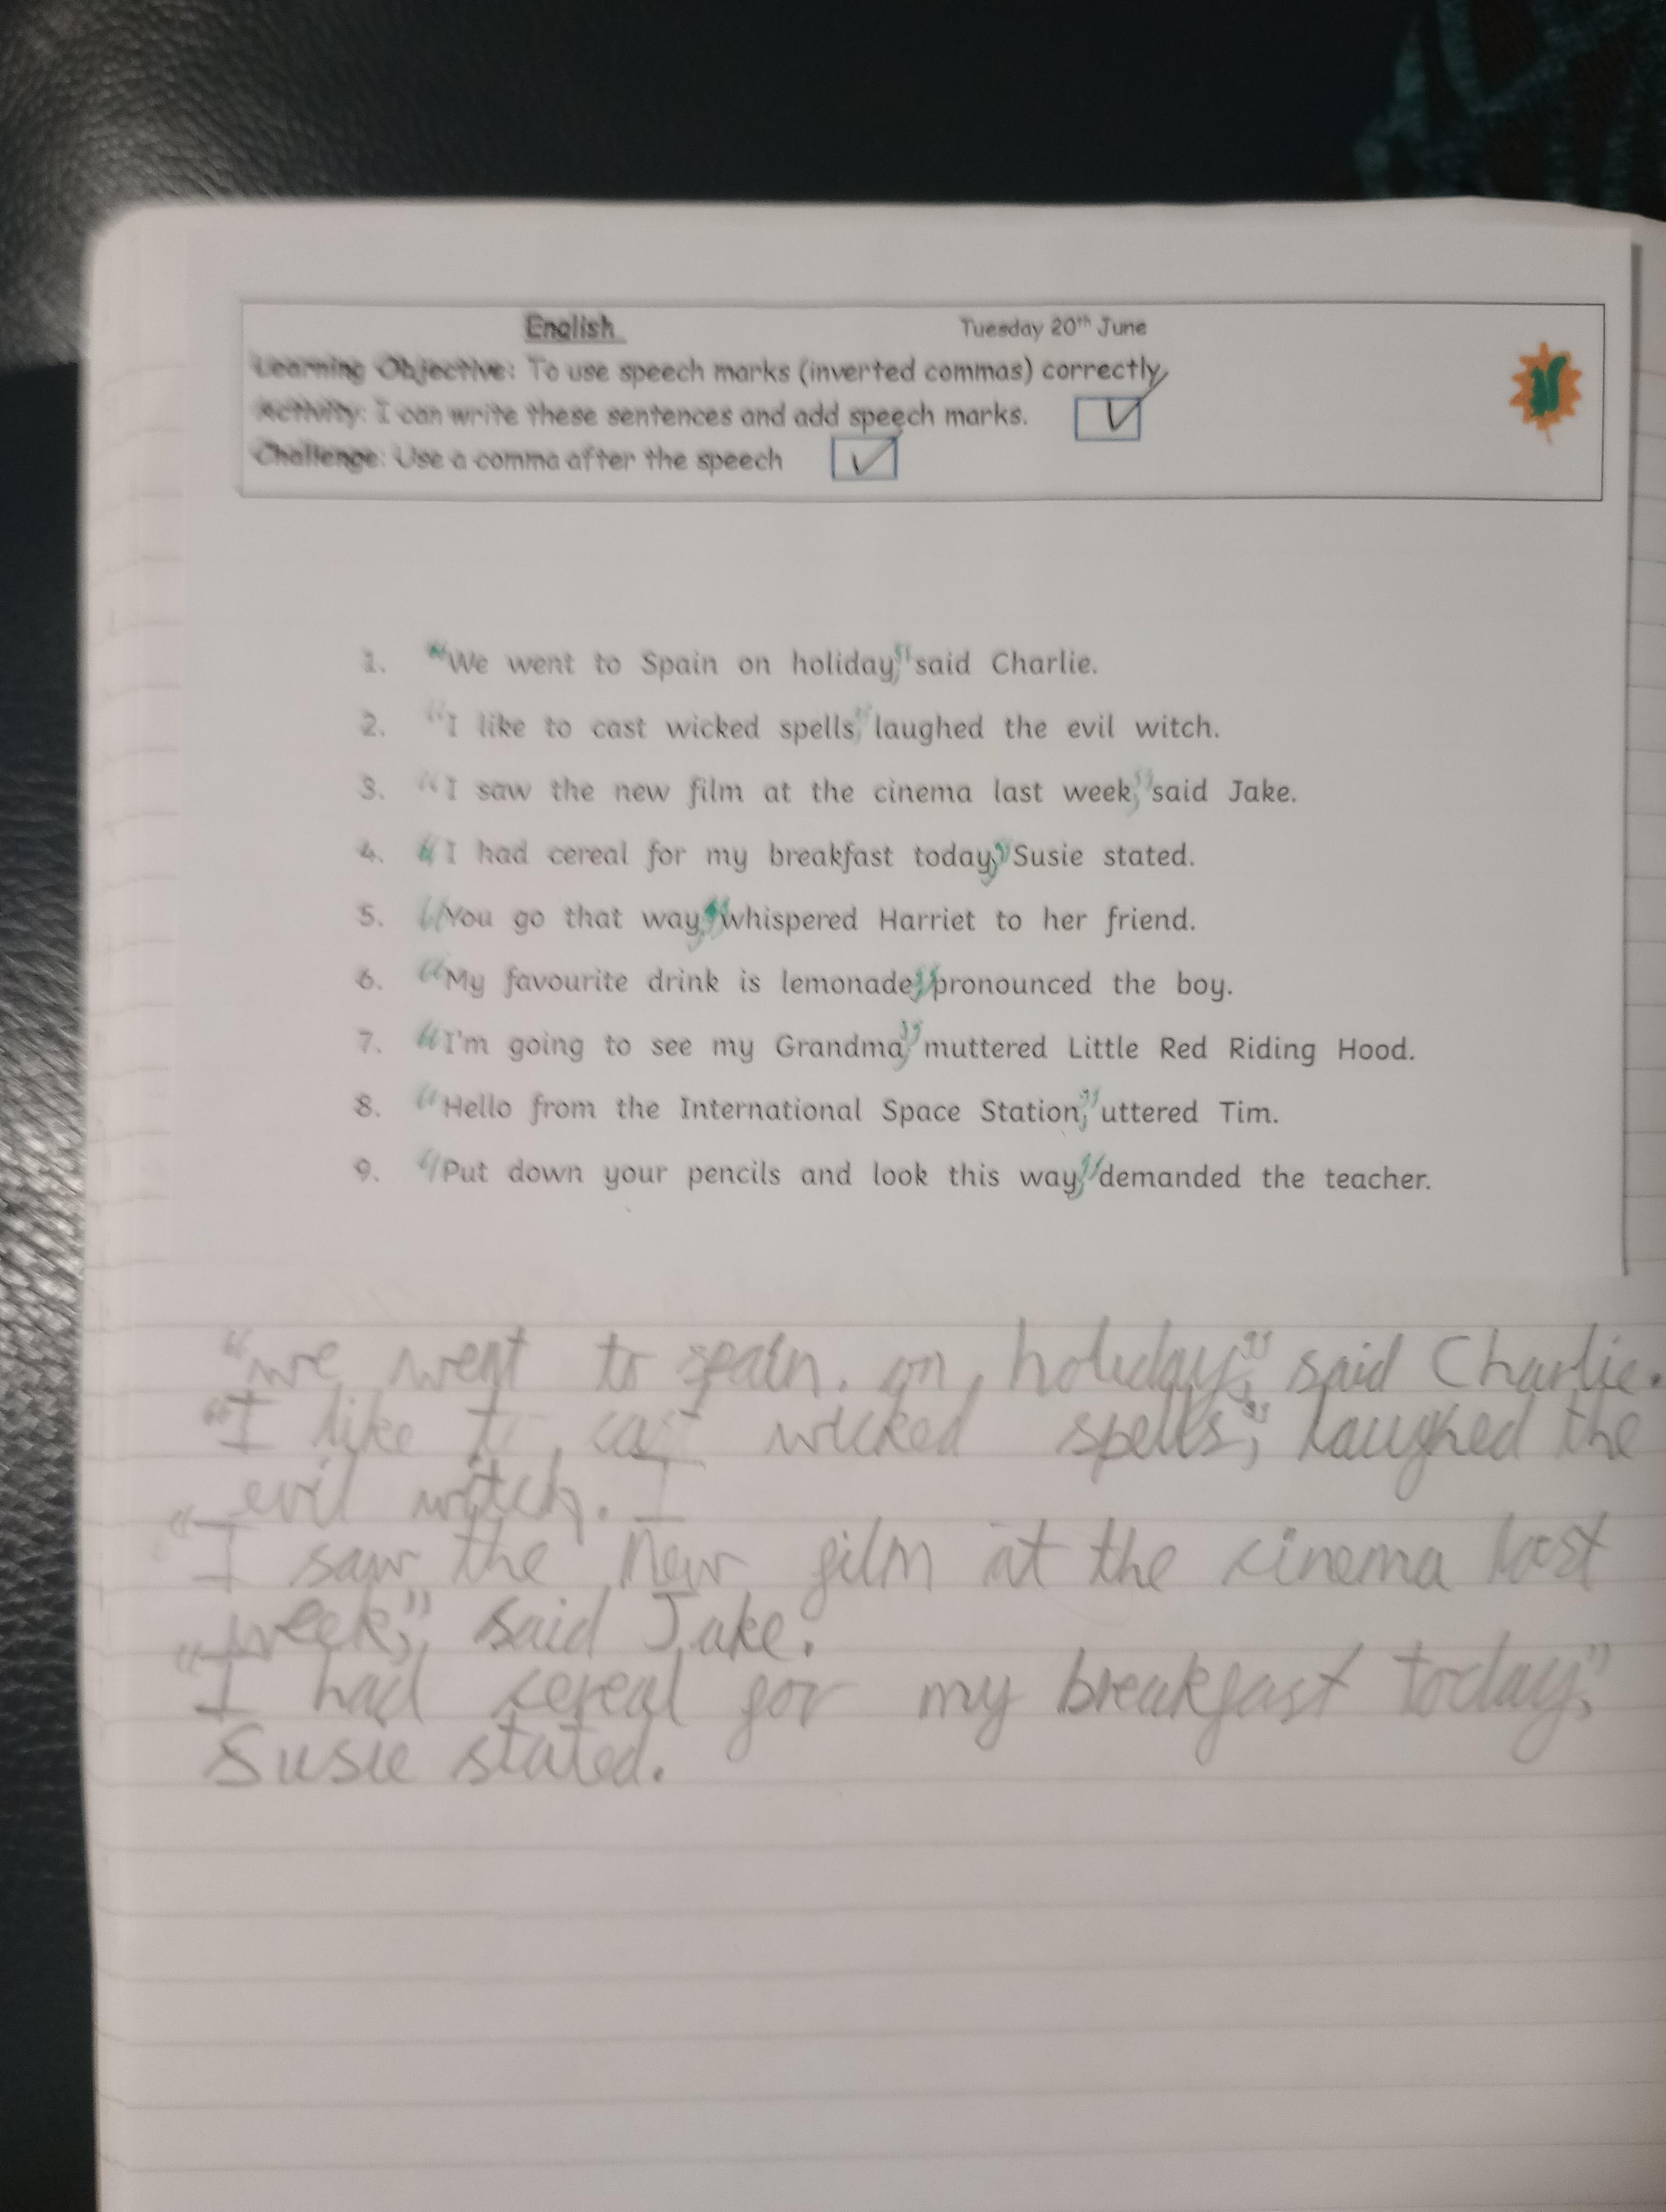 English Tuesday 20th June
Learning Objective: To use speech marks (inverted commas) correctly
Activity: I can write these sentences and add speech marks.
Challenge: Use a comma after the speech
1. "We went to Spain on holiday," said Charlie.
2. "I like to cast wicked spells," laughed the evil witch.
3. "I saw the new film at the cinema last week," said Jake.
4. "I had cereal for my breakfast today," Susie stated.
5. "You go that way," whispered Harriet to her friend.
6. "My favourite drink is lemonade," pronounced the boy.
7. "I'm going to see my Grandma," muttered Little Red Riding Hood.
8. "Hello from the International Space Station," uttered Tim.
9. "Put down your pencils and look this way," demanded the teacher.
"we went to spain. on, holiday," said Charlie.
"I like to cast wicked spells," laughed the
evil witch.
"I saw the new film at the cinema last
week," said Jake.
"I had cereal for my breakfast today,"
Susie stated.